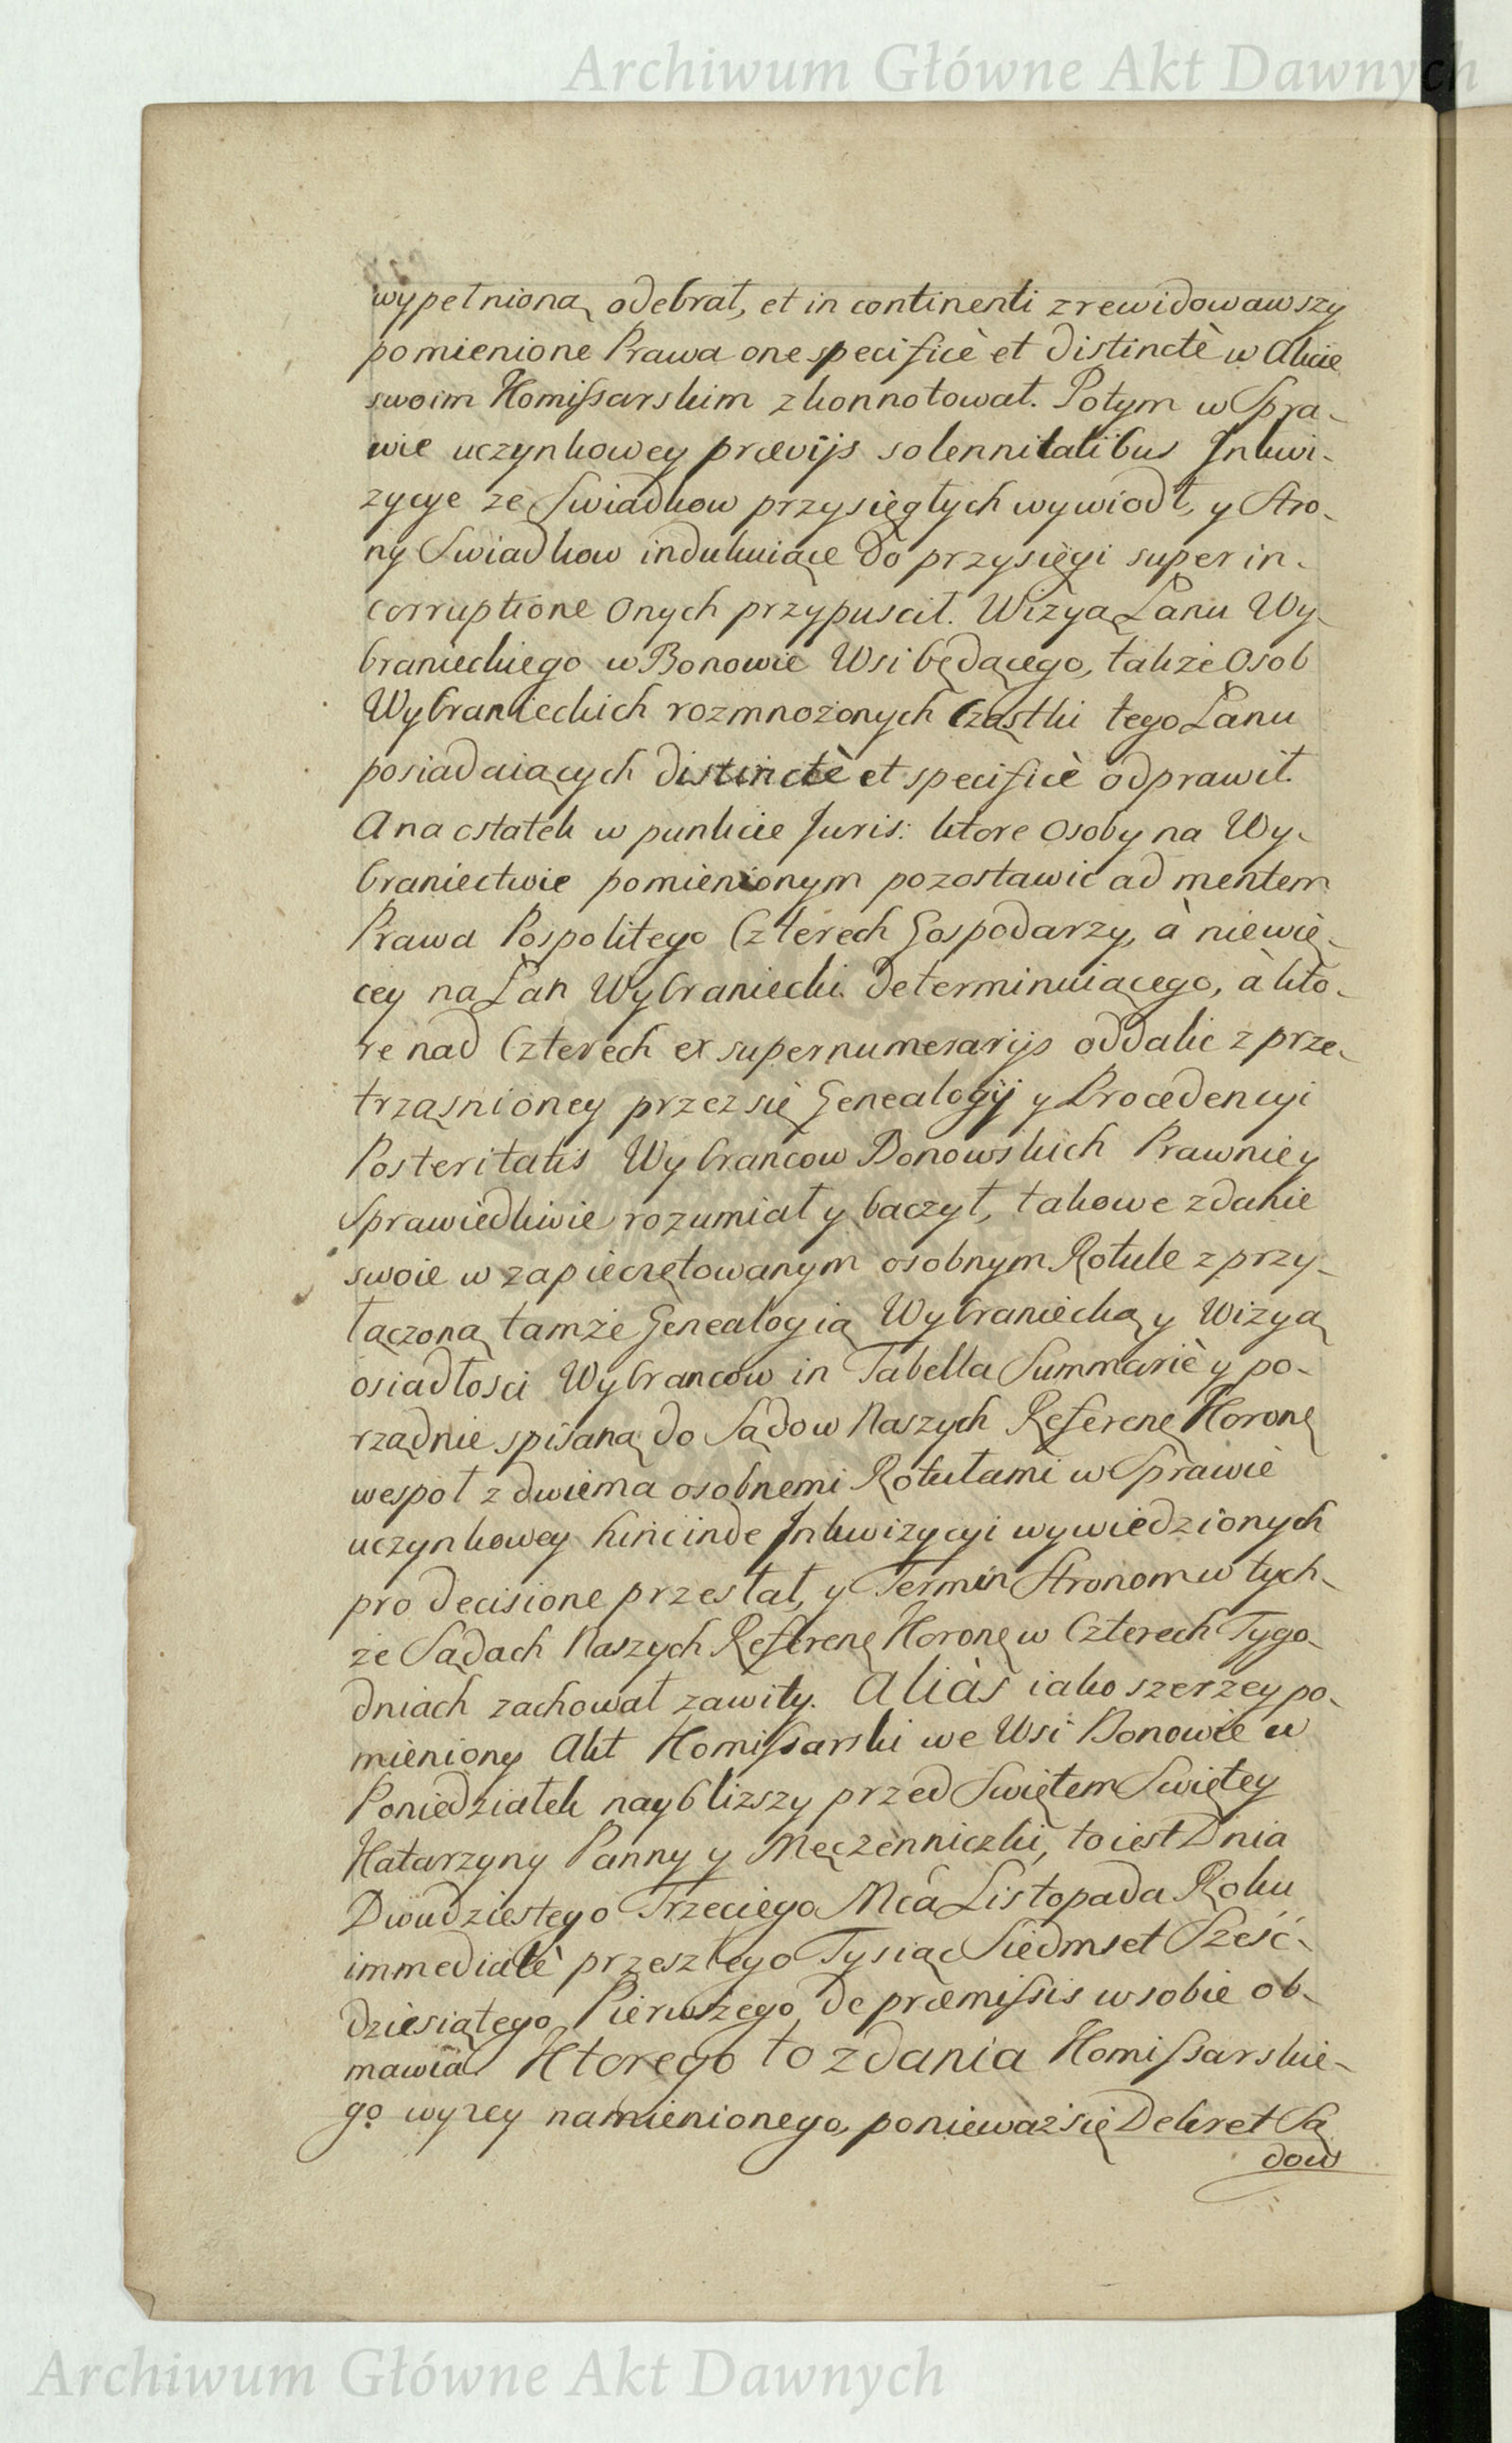 Archiwum Główne Akt Dawnych
wypełnioną odebrał, et in continenti zrewidowawszy
pomienione Prawa one specificè et distinctè w Akcie
swoim Komissarskim zkonnotował. Potym w Spra-
wie uczynkowey prævijs solennitatibus Inkwi-
zycye ze Swiadkow przysięgłych wywiodł, y Stro-
ny Swiadkow indukuiące do przysięgi super in-
corruptione onych przypuscił. Wizyą Łanu Wy-
branieckiego w Bonowie Wsi będącego, także Osob
Wybranieckich rozmnożonych Cząstki tego Łanu
posiadaiących distinctè et specificè odprawił.
A na ostatek w punkcie Juris: ktore Osoby na Wy-
braniectwie pomienionym pozostawić ad mentem
Prawa Pospolitego Czterech Gospodarzy, à niewię-
cey na Łan Wybraniecki determinuiącego, à kto-
re nad Czterech ex supernumerarijs oddalić z prze-
trząsnioney przez się Genealogij y Procedencyi
Posteritatis Wybrancow Bonowskich Prawnie y
Sprawiedliwie rozumiał y baczył, takowe zdanie
swoie w zapieczętowanym osobnym Rotule z przy-
łączoną tamże Genealogią Wybraniecką y Wizyą
osiadłosci Wybrancow in Tabella Summariè y po-
rządnie spisaną do Sądow Naszych Referenę Koronę
wespoł z dwiema osobnemi Rotułami w Sprawie
uczynkowey hinc inde Inkwizycyi wywiedzionych
pro decisione przesłał, y Termin Stronom w tych-
że Sądach Naszych Referenę Koronę w Czterech Tygo-
dniach zachował zawity. Aliàs iako szerzey po-
mieniony Akt Komissarski we Wsi Bonowie w
Poniedziałek nayblizszy przed Swiętem Swiętey
Katarzyny Panny y Męczenniczki, to iest Dnia
Dwudziestego Trzeciego Mca Listopada Roku
immediatè przeszłego Tysiąc Siedmset Sześć-
dziesiątego Pierwszego de præmissis w sobie ob-
mawia. Ktorego to zdania Komissarskie-
go wyzey namienionego, ponieważ się Dekret Są
dow
Archiwum Główne Akt Dawnych